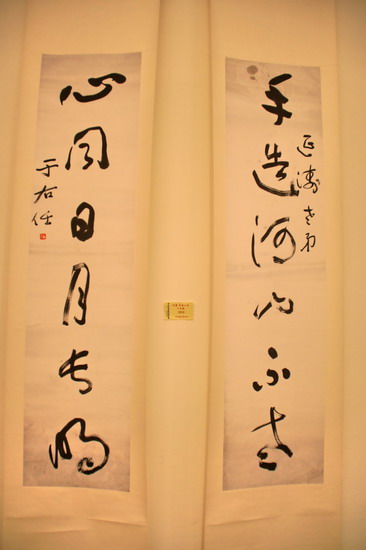 手造河山不老
延濤老弟
心同日月長明
于右任